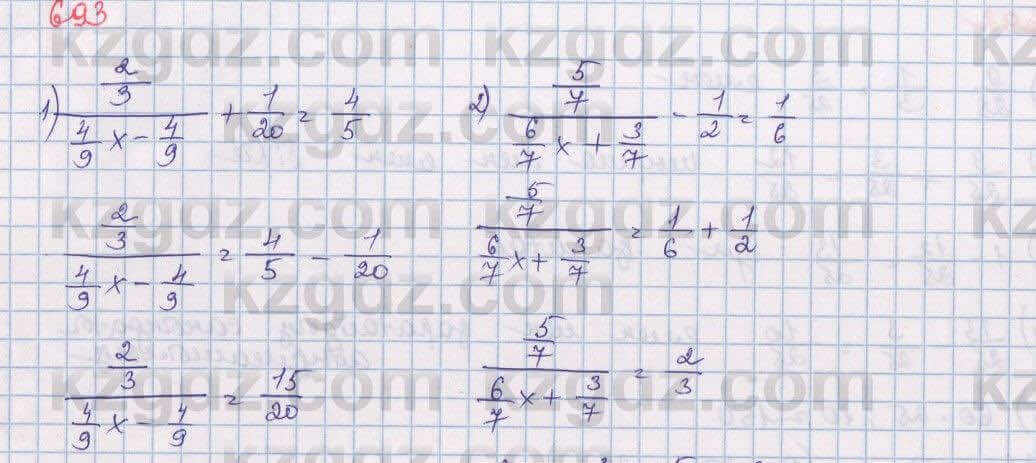 693
kzgdz.com
1) \frac{\frac{2}{3}}{\frac{4}{9}x - \frac{4}{9}} + \frac{1}{20} = \frac{4}{5}
2) \frac{\frac{5}{7}}{\frac{6}{7}x + \frac{3}{7}} - \frac{1}{2} = \frac{1}{6}
\frac{\frac{2}{3}}{\frac{4}{9}x - \frac{4}{9}} = \frac{4}{5} - \frac{1}{20}
\frac{\frac{5}{7}}{\frac{6}{7}x + \frac{3}{7}} = \frac{1}{6} + \frac{1}{2}
\frac{\frac{2}{3}}{\frac{4}{9}x - \frac{4}{9}} = \frac{15}{20}
\frac{\frac{5}{7}}{\frac{6}{7}x + \frac{3}{7}} = \frac{2}{3}